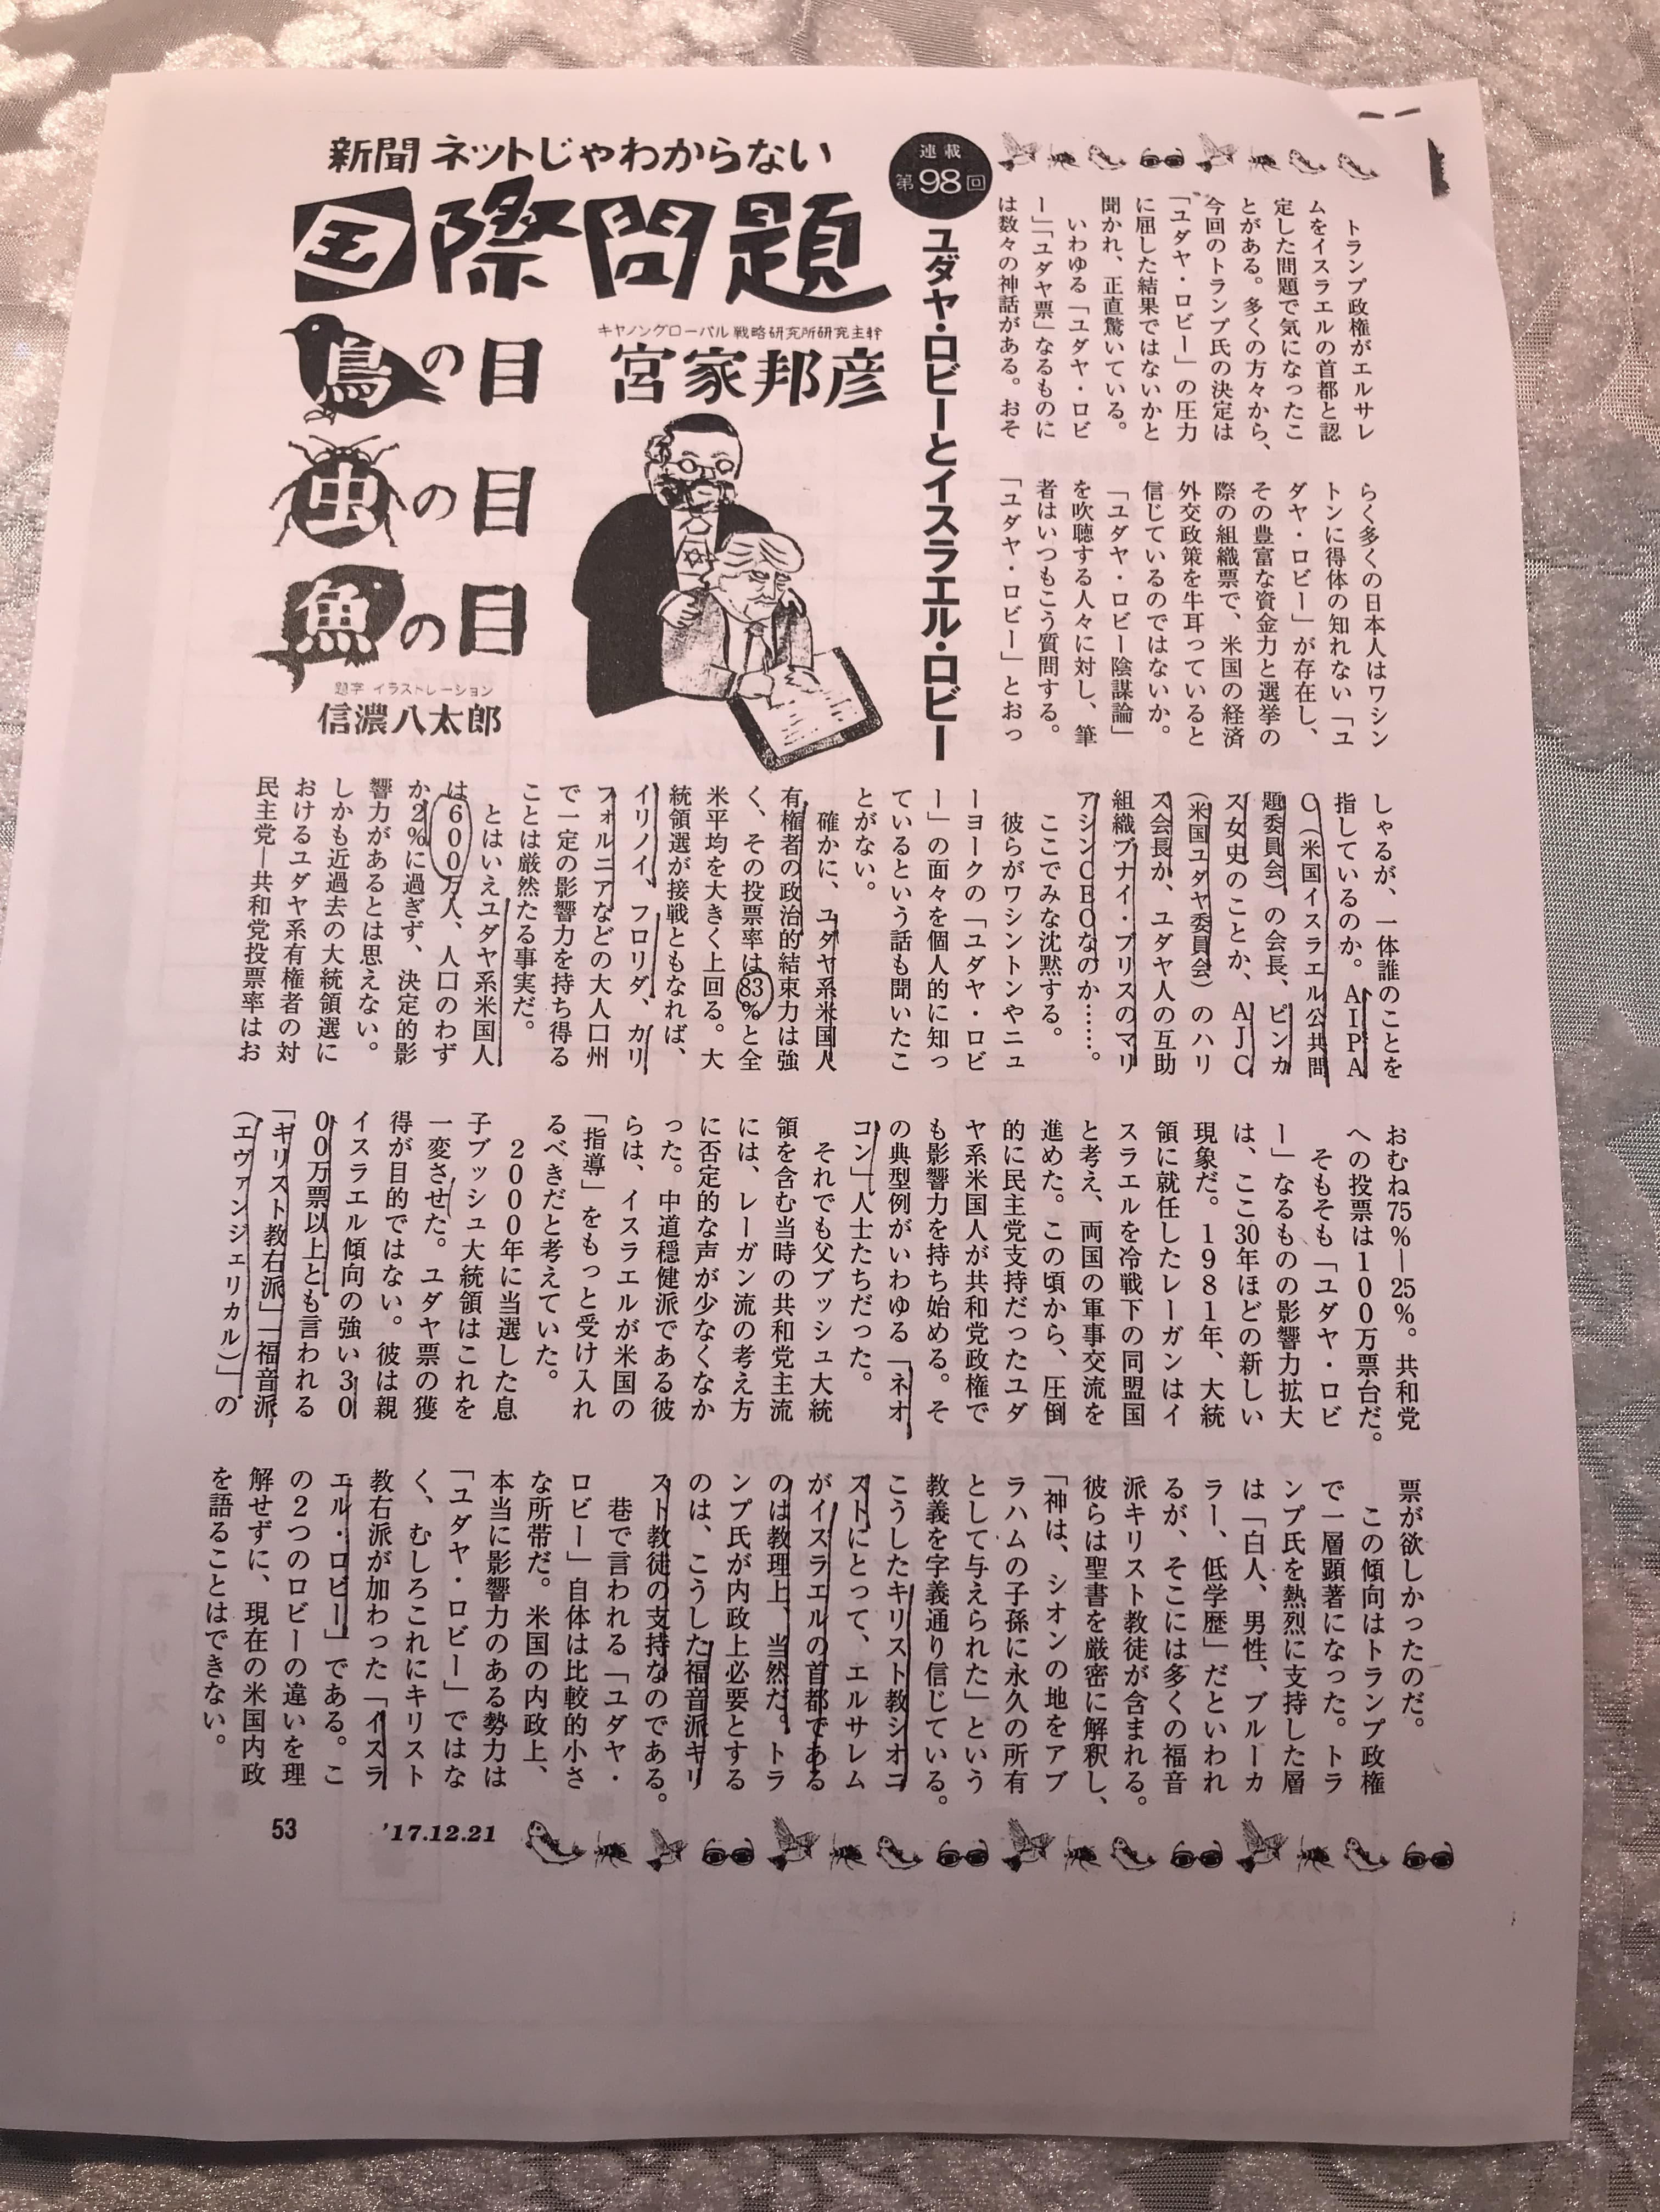 新聞 ネットじゃわからない
国際問題
鳥の目
虫の目
魚の目
キヤノングローバル戦略研究所研究主幹
宮家邦彦
題字 イラストレーション
信濃八太郎
連載
第98回
ユダヤ・ロビーとイスラエル・ロビー
トランプ政権がエルサレ
ムをイスラエルの首都と認
定した問題で気になったこ
とがある。多くの方々から、
今回のトランプ氏の決定は
「ユダヤ・ロビー」の圧力
に屈した結果ではないかと
聞かれ、正直驚いている。
いわゆる「ユダヤ・ロビ
ー」「ユダヤ票」なるものに
は数々の神話がある。おそ
らく多くの日本人はワシン
トンに得体の知れない「ユ
ダヤ・ロビー」が存在し、
その豊富な資金力と選挙の
際の組織票で、米国の経済
外交政策を牛耳っていると
信じているのではないか。
「ユダヤ・ロビー陰謀論」
を吹聴する人々に対し、筆
者はいつもこう質問する。
「ユダヤ・ロビー」とおっ
しゃるが、一体誰のことを
指しているのか。AIPA
C（米国イスラエル公共問
題委員会）の会長、ピンカ
ス女史のことか、AJC
（米国ユダヤ委員会）のハリ
ス会長か、ユダヤ人の互助
組織ブナイ・ブリスのマリ
アシンCEOなのか……。
ここでみな沈黙する。
彼らがワシントンやニュ
ーヨークの「ユダヤ・ロビ
ー」の面々を個人的に知っ
ているという話も聞いたこ
とがない。
確かに、ユダヤ系米国人
有権者の政治的結束力は強
く、その投票率は83%と全
米平均を大きく上回る。大
統領選が接戦ともなれば、
イリノイ、フロリダ、カリ
フォルニアなどの大人口州
で一定の影響力を持ち得る
ことは厳然たる事実だ。
とはいえユダヤ系米国人
は600万人、人口のわず
か2%に過ぎず、決定的影
響力があるとは思えない。
しかも近過去の大統領選に
おけるユダヤ系有権者の対
民主党—共和党投票率はお
おむね75%—25%。共和党
への投票は100万票台だ。
そもそも「ユダヤ・ロビ
ー」なるものの影響力拡大
は、ここ30年ほどの新しい
現象だ。1981年、大統
領に就任したレーガンはイ
スラエルを冷戦下の同盟国
と考え、両国の軍事交流を
進めた。この頃から、圧倒
的に民主党支持だったユダ
ヤ系米国人が共和党政権で
も影響力を持ち始める。そ
の典型例がいわゆる「ネオ
コン」人士たちだった。
それでも父ブッシュ大統
領を含む当時の共和党主流
には、レーガン流の考え方
に否定的な声が少なくなか
った。中道穏健派である彼
らは、イスラエルが米国の
「指導」をもっと受け入れ
るべきだと考えていた。
2000年に当選した息
子ブッシュ大統領はこれを
一変させた。ユダヤ票の獲
得が目的ではない。彼は親
イスラエル傾向の強い30
00万票以上とも言われる
「キリスト教右派」「福音派
（エヴァンジェリカル）」の
票が欲しかったのだ。
この傾向はトランプ政権
で一層顕著になった。トラ
ンプ氏を熱烈に支持した層
は「白人、男性、ブルーカ
ラー、低学歴」だといわれ
るが、そこには多くの福音
派キリスト教徒が含まれる。
彼らは聖書を厳密に解釈し、
「神は、シオンの地をアブ
ラハムの子孫に永久の所有
として与えられた」という
教義を字義通り信じている。
こうしたキリスト教シオニ
ストにとって、エルサレム
がイスラエルの首都である
のは教理上、当然だ。トラ
ンプ氏が内政上必要とする
のは、こうした福音派キリ
スト教徒の支持なのである。
巷で言われる「ユダヤ・
ロビー」自体は比較的小さ
な所帯だ。米国の内政上、
本当に影響力のある勢力は
「ユダヤ・ロビー」ではな
く、むしろこれにキリスト
教右派が加わった「イスラ
エル・ロビー」である。こ
の2つのロビーの違いを理
解せずに、現在の米国内政
を語ることはできない。
53
'17.12.21